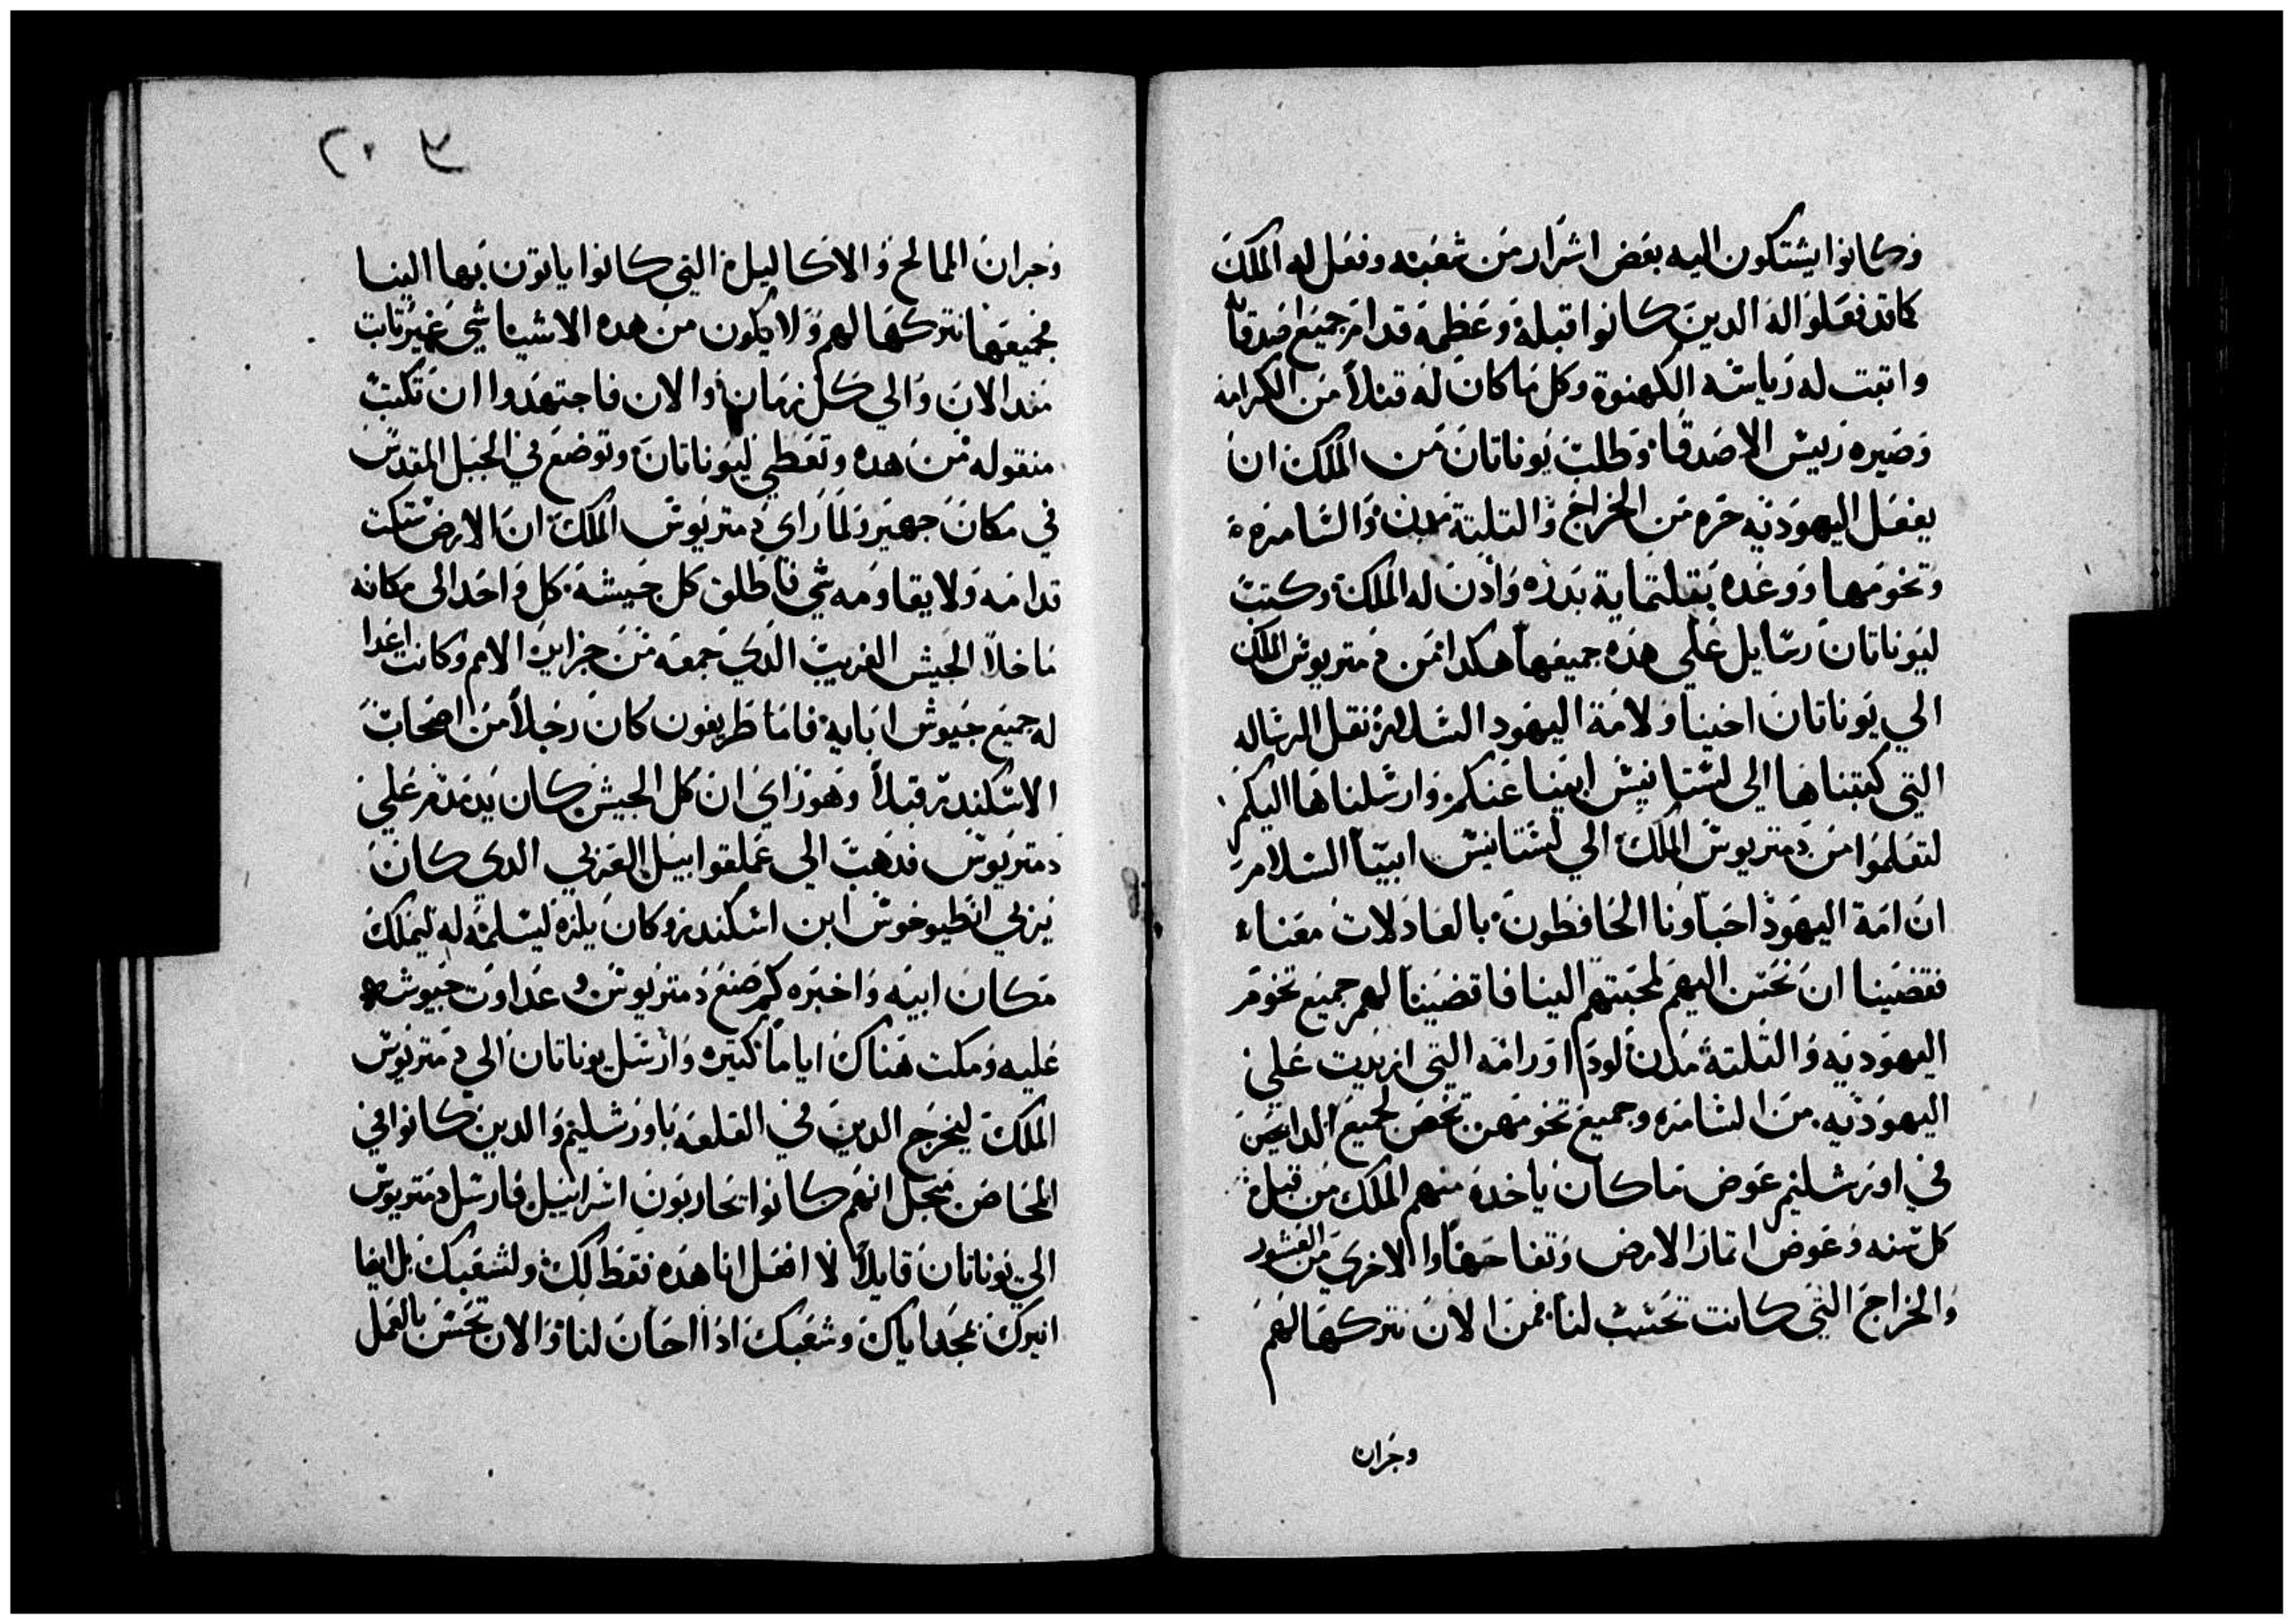 وكانوا يشتكون اليه بعض اشرار من شعبه وفعل له الملك
كما قد فعلوا له الدين كانوا قبله وعظمه قدام جميع اصدقاه
واتبت له رياسة الكهنوة وكل ما كان له قبلاً من الكرامه
وصيره رييس الاصدقا. وطلب يوناتان من الملك ان
يفعل اليهوديه حره من الخراج والتلتة مدن والسامره
وتخومها ووعده بتلتماية بدره وادن له الملك وكتب
ليوناتان رسايل علي هذه جميعها هكدا من دمتريوس الملك
الي يوناتان اخينا ولامة اليهود السلام نقل الرساله
التي كتبناها الي لستانيس ابينا عنكم وارسلناها اليكم
لتعلموا من دمتريوس الملك الي لستانيس ابيا السلام
ان امة اليهود احباونا الحافظون بالعادلات معنا
فقضينا ان نحسن اليهم لمحبتهم الينا فاقضينا لهم جميع تخوم
اليهوديه والتلتة مدن لود اورامه التي ازيدت علي
اليهوديه من السامره وجميع تخومهن تخص لجميع الدابحين
في اورشليم عوض ما كان ياخده منهم الملك من قبل
كل سنه وعوض اتمار الارض وتفاحها والاخري من العشور
والخراج التي كانت تحسب لنا. فمن الان نتركها لهم
وجران
٢٠٦
وجران الممالح والاكاليل التي كانوا ياتون بها الينا
فجميعها نتركها لهم ولا يكون من هده الاشيا شي غير تابت
مند الان والي كل زمان والان فاجتهدوا ان تكتب
منقوله من هده وتعطي ليوناتان وتوضع في الجبل المقدس
في مكان جهير ولما راي دمتريوس الملك ان الارض سكتت
قدامه ولا يقاومه شي فاطلق كل جيشه كل واحد الى مكانه
ما خلا الجيش الغريب الدي جمعه من جزاير الامم وكانت اعدا
له جميع جيوش ابايه فاما طريفون كان رجلاً من اصحاب
الاسكندر قبلاً وهو راي ان كل الجيش كان يدمدم علي
دمتريوس فدهب الي عملقوابيل العربي الدي كان
يربي انطيوخوس ابن اسكندر وكان يلزه ليسلمه له ليملك
مكان ابيه واخبره كم صنع دمتريوس وعداوت جيوشه
عليه ومكت هناك اياماً كتيره وارسل يوناتان الي دمتريوس
الملك ليخرج الدين في القلعه باورشليم والدين كانوا في
المحاضن فمجل انهم كانوا يحاربون اسراييل فارسل دمتريوس
الي يوناتان قايلاً لا افعل انا هده فقط لك ولشعبك بل ايضا
انيرك بمجد اياك وشعبك ادا احان لنا والان تحسن بالعمل